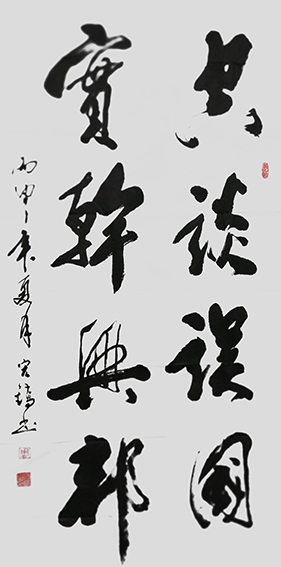 空談誤國
實幹興邦
丙申年夏月书